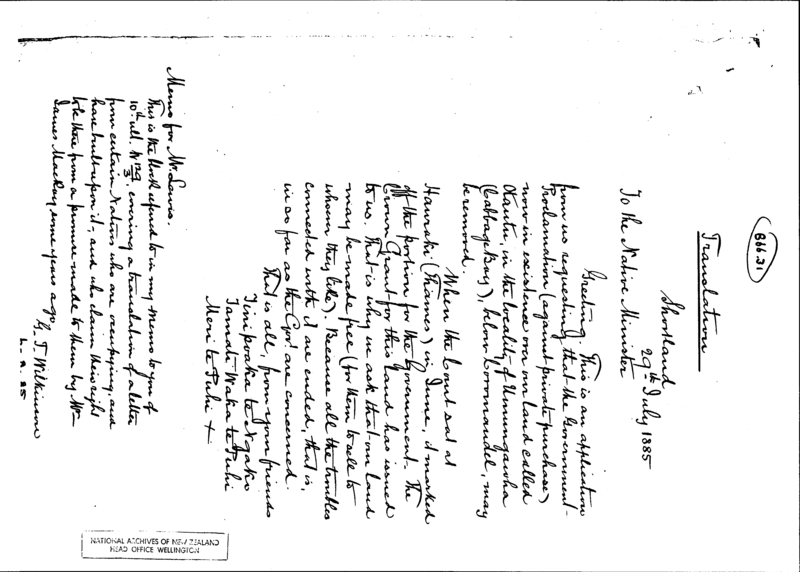 B66.31
Translation
Shortland
29th July 1885
To the Native Minister
Greeting. This is an application
from us requesting that the Government
Proclamation (against private purchase)
now in existence over our land called
Otautu, in the locality of
(Cabbage Bay), below Coromandel, may
be removed.
When the Court sat at
Hauraki (Thames) in June, it marked
off the portion for the Government. The
Crown Grant for this land has issued
to us. That is why we ask that our land
may be made free (for them to sell to
whom they like), Because all the troubles
connected with it are ended, that is,
in so far as the Govt are concerned.
That is all, from your friends
te Ngako
Tamati Waka te Puhi
Meri te Puhi +
Memo for Mr Lewis.
This is the block refered to in my memo to you of
10th ult. covering a translation of a letter
from certain Natives who are occupying, and
have built upon it, and who claim their right
to be there from a promise made to them by Mr
James Mackay some years ago
G. T. Wilkinson
NATIONAL ARCHIVES OF NEW ZEALAND
HEAD OFFICE WELLINGTON